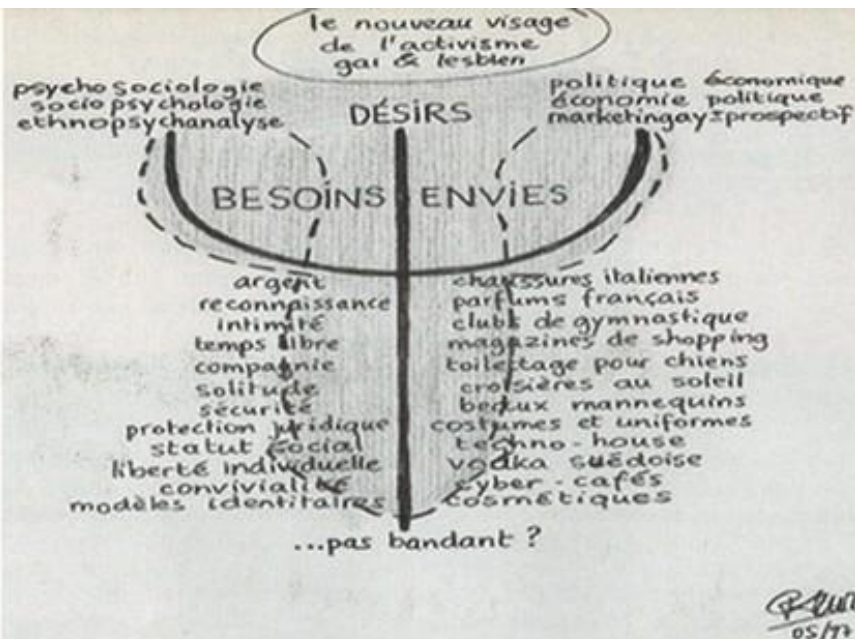 le nouveau visage
de l'activisme
gai & lesbien
psychosociologie
sociopsychologie
ethnopsychanalyse
DÉSIRS
politique économique
économie politique
marketingay prospectif
BESOINS
ENVIES
argent
reconnaissance
intimité
temps libre
compagnie
solitude
sécurité
protection juridique
statut social
liberté individuelle
convivialité
modèles identitaires
chaussures italiennes
parfums français
clubs de gymnastique
magazines de shopping
toilettage pour chiens
croisières au soleil
beaux mannequins
costumes et uniformes
techno-house
vodka suédoise
cyber-cafés
cosmétiques
...pas bandant ?
05/97